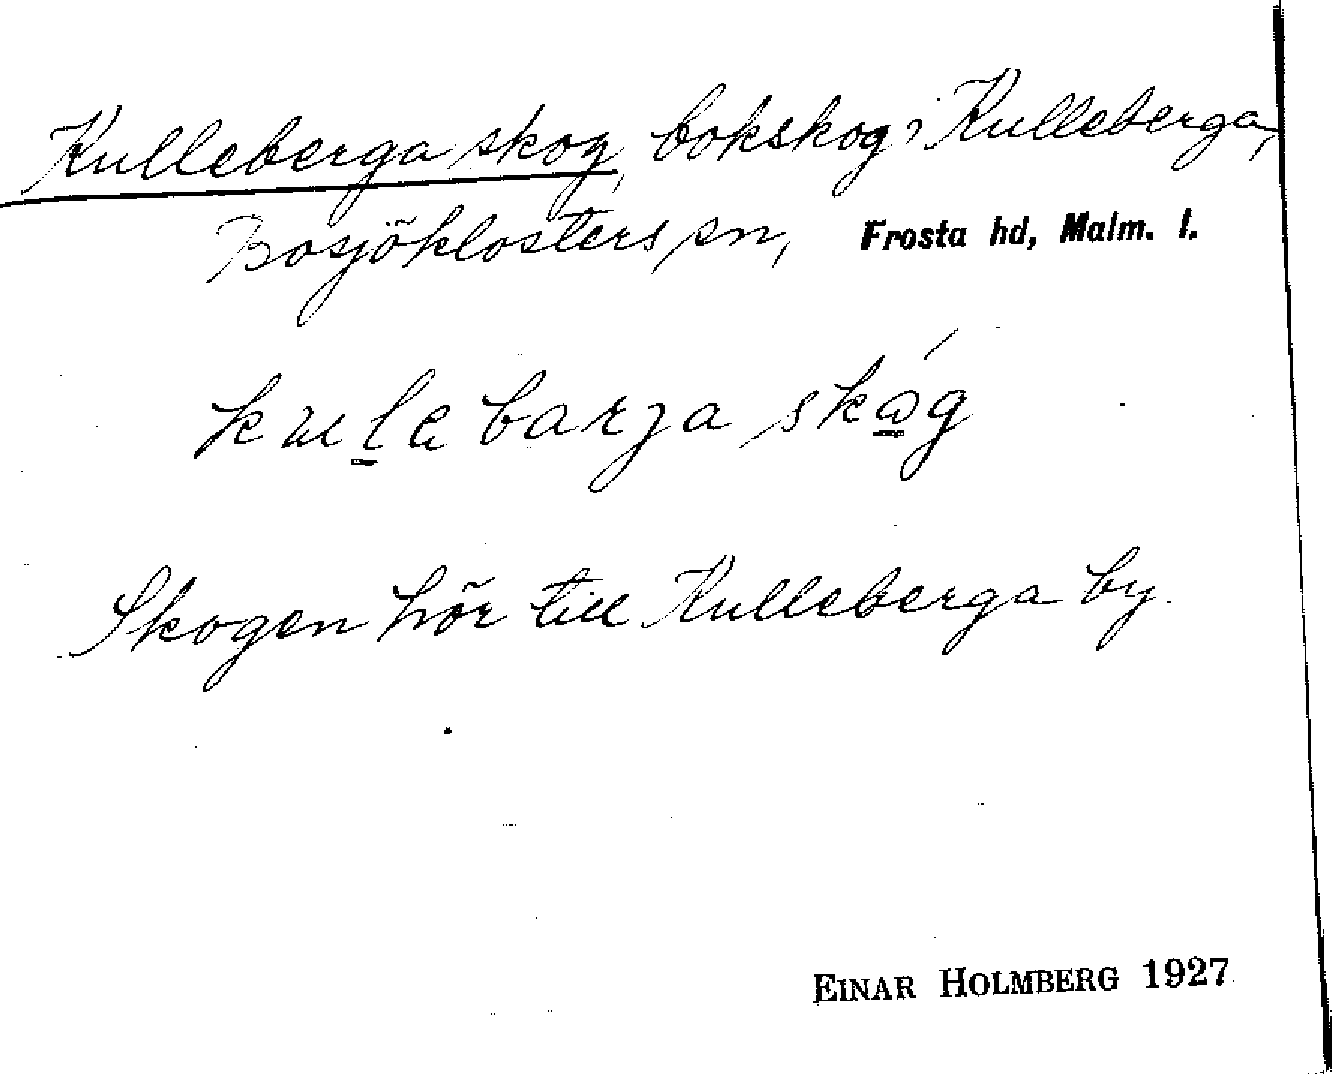 Kulleberga skog, bokskog i Kulleberga,
Bosjöklosters sn, Frosta hd, Malm. l.
kulebarja skóg
Skogen hör till Kulleberga by.
EINAR HOLMBERG 1927